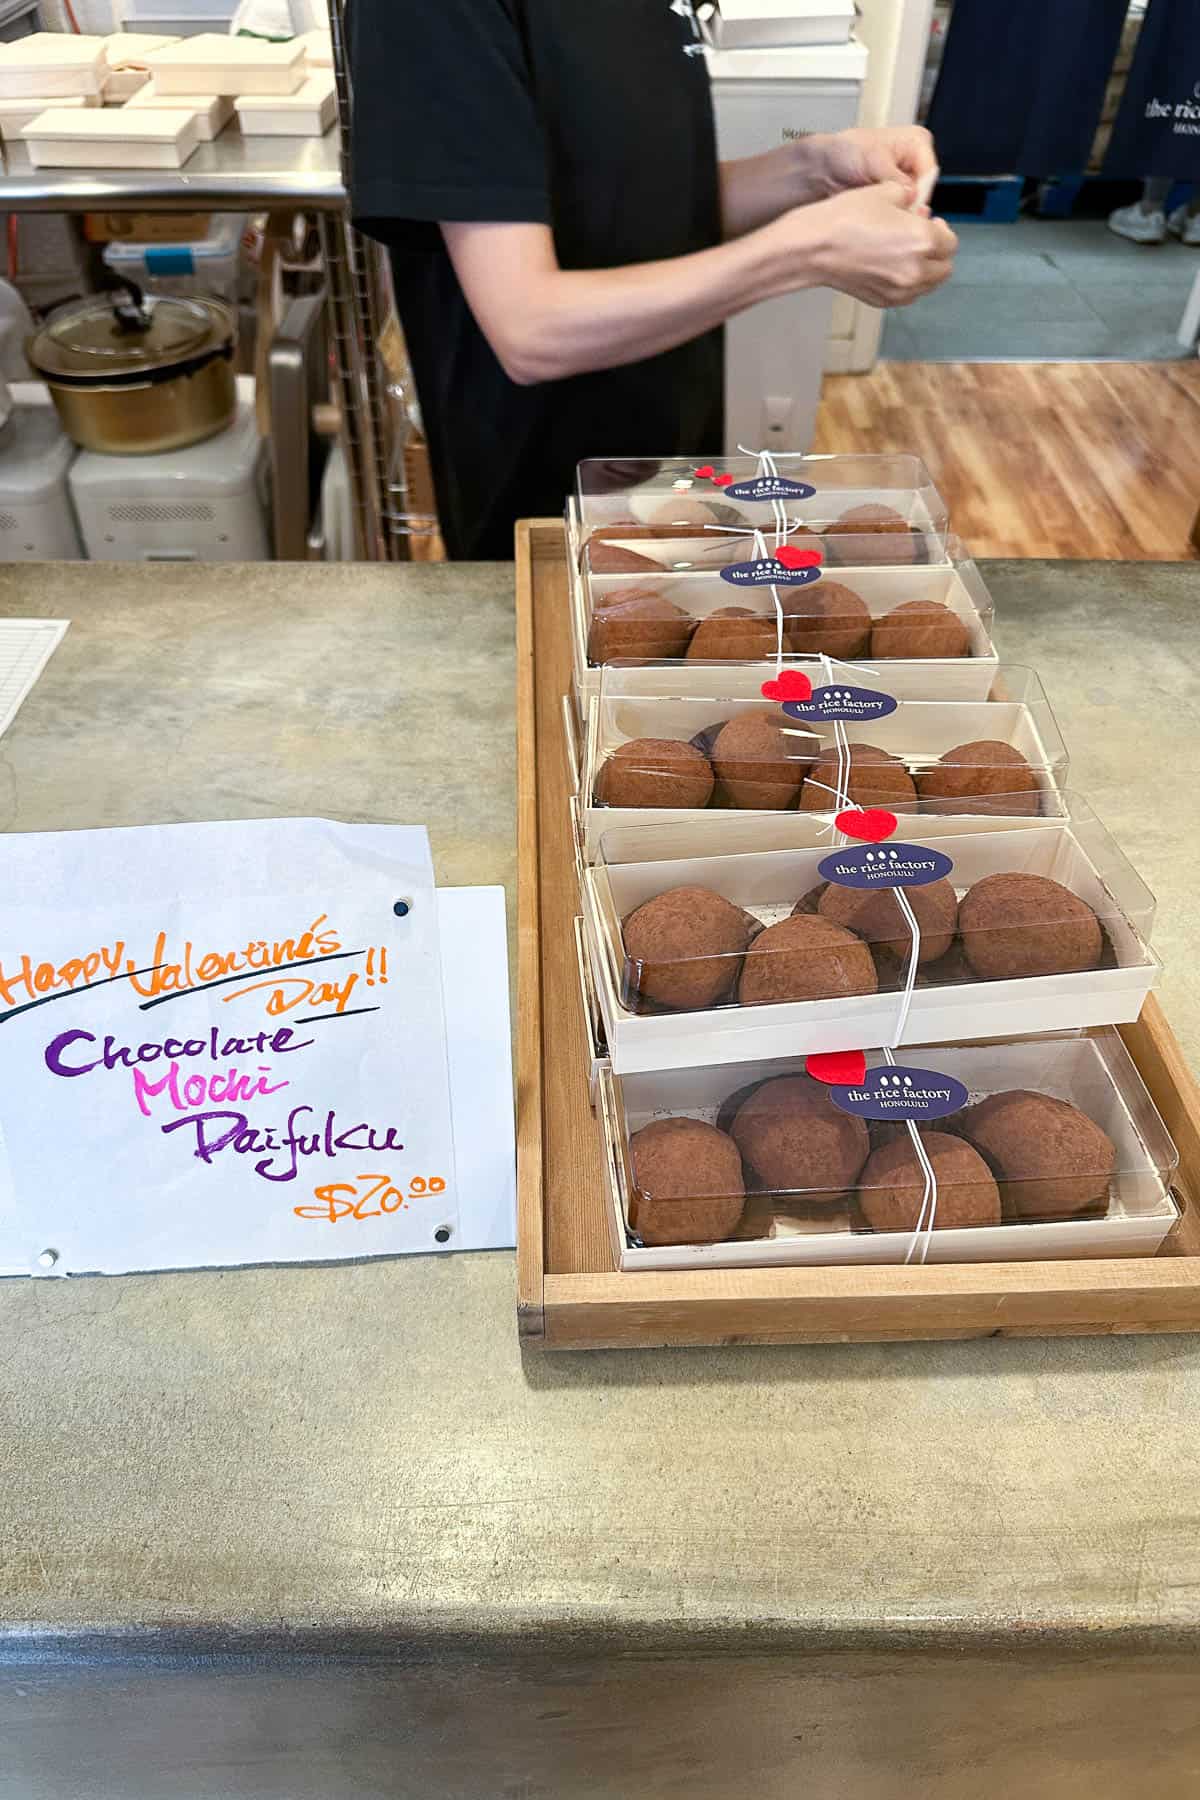 the rice
HONO
the rice factory
HONOLULU
the rice factory
HONOLULU
the rice factory
HONOLULU
the rice factory
HONOLULU
the rice factory
HONOLULU
Happy Valentine's
Day!!
Chocolate
Mochi
Daifuku
$20.00